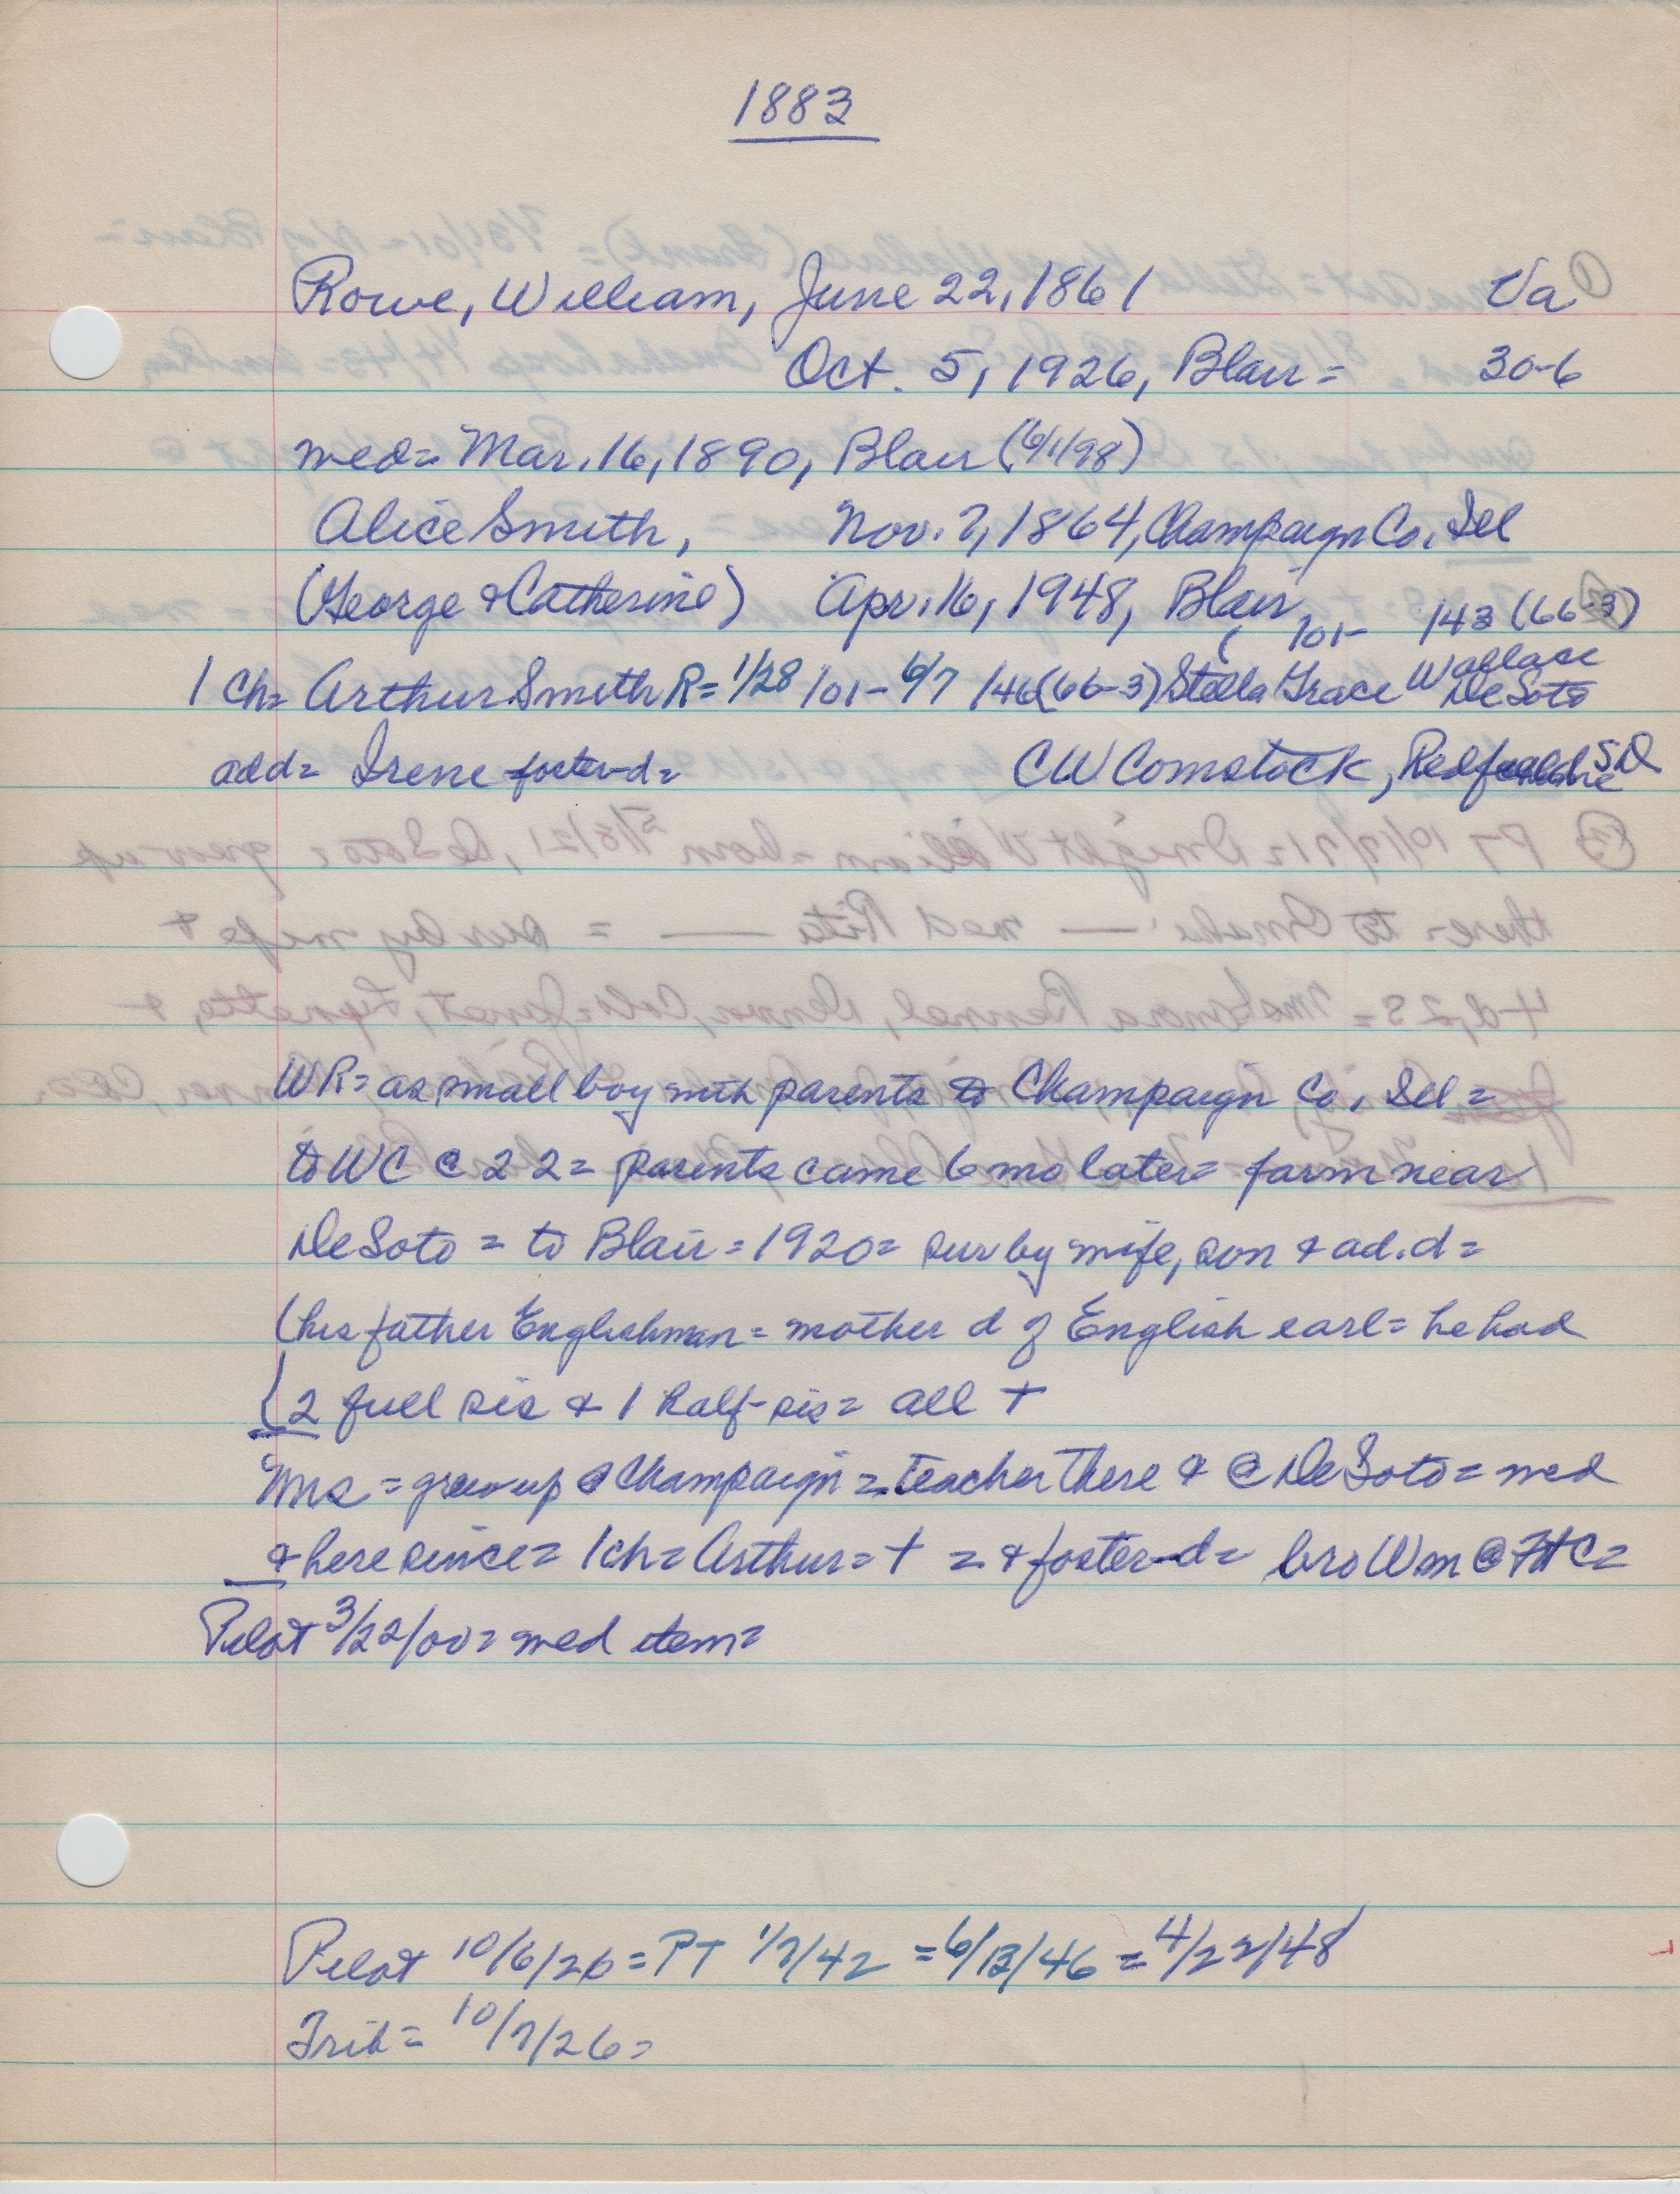 1883
Rowe, William, June 22, 1861 Va
Oct. 5, 1926, Blair = 30-6
med = Mar. 16, 1890, Blair (6/1/98)
Alice Smith, Nov. 7, 1864, Champaign Co, Ill
(George & Catherine) Apr. 16, 1948, Blair
( 101- 143 (66-3)
1 ch = Arthur Smith R = 1/28/01 - 6/7/46 (66-3) Stella Grace Wallace DeSoto
add = Irene foster-d = CW Comstock, Redfield SD
WR = as small boy with parents to Champaign Co, Ill =
to WC @ 22 = parents came 6 mo later = farm near
DeSoto = to Blair = 1920 = sur by wife, son & ad. d =
(his father Englishman = mother d of English earl = he had
2 full sis & 1 half-sis = all +
Mrs = grew up @ Champaign = teacher there & @ DeSoto = med
& here since = 1 ch = Arthur = + = & foster-d = bro Wm @ Ft C =
Pilot 3/22/00 = med item =
Pilot 10/6/26 = PT 1/7/42 = 6/13/46 = 4/22/48
Trib = 10/7/26 =